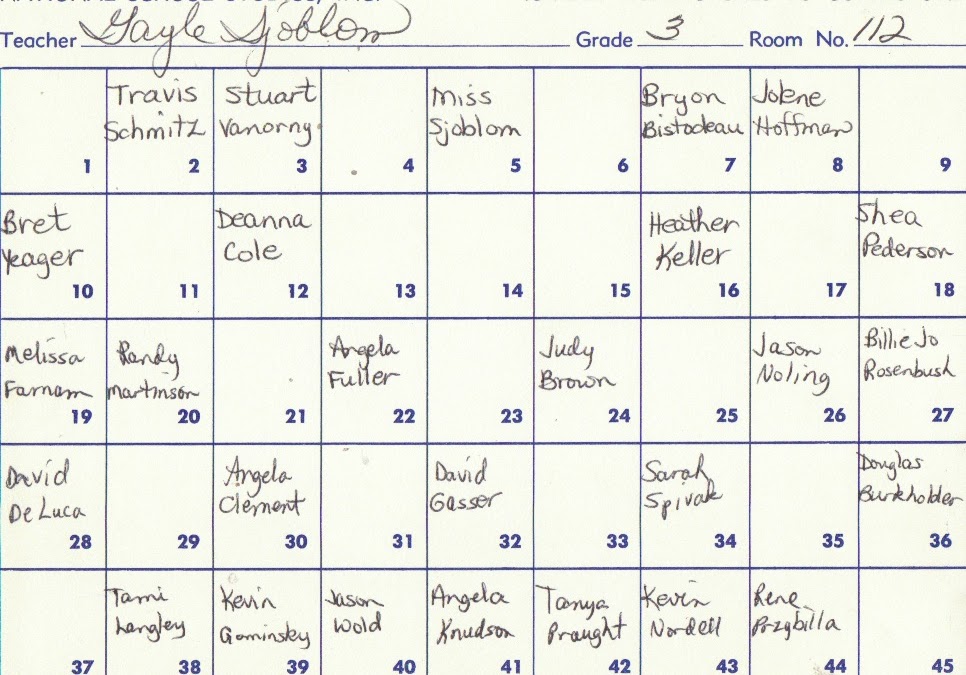 Teacher Gayle Sjoblom Grade 3 Room No. 112
Travis Schmitz Stuart Vanorny Miss Sjoblom Bryon Bistodeau Jolene Hoffman
1 2 3 4 5 6 7 8 9
Bret Yeager Deanna Cole Heather Keller Shea Pederson
10 11 12 13 14 15 16 17 18
Melissa Farnam Randy Martinson Angela Fuller Judy Brown Jason Noling Billie Jo Rosenbush
19 20 21 22 23 24 25 26 27
David DeLuca Angela Clement David Gasser Sarah Spivak Douglas Burkholder
28 29 30 31 32 33 34 35 36
Tami Langley Kevin Gominsky Jason Wold Angela Knudson Tanya Praught Kevin Nordell Rene Przybilla
37 38 39 40 41 42 43 44 45